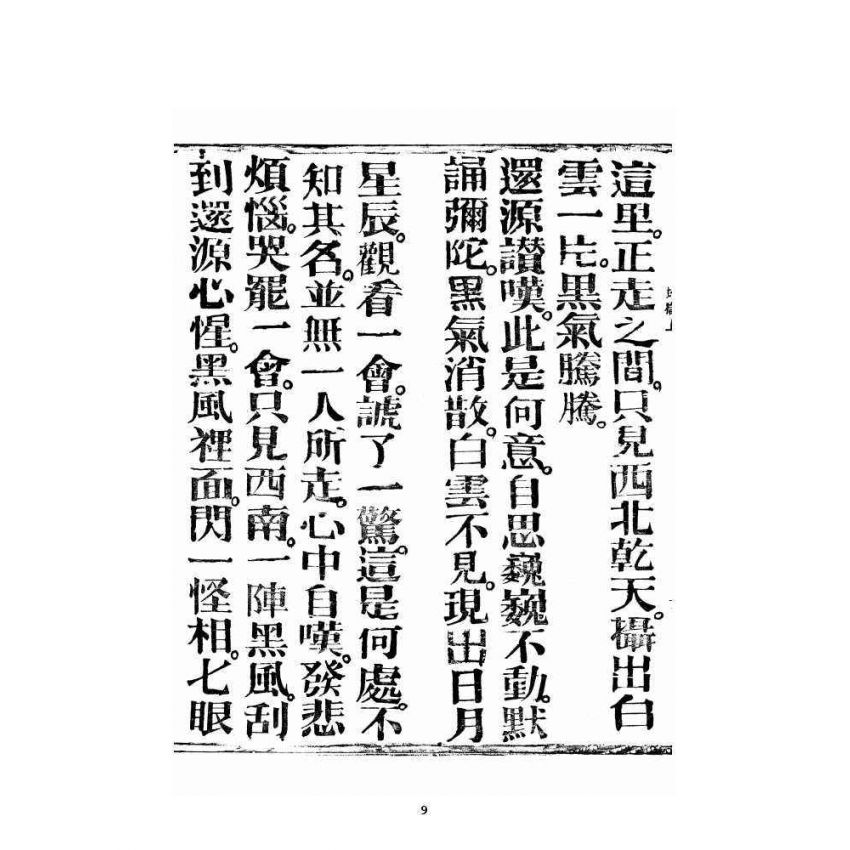 這里。正走之間。只見西北乾天。攝出白
雲一片。黒氣騰騰。
還源讃嘆。此是何意。自思巍巍不動。默
誦彌陀。黒氣消散。白雲不見。現出日月
星辰。觀看一會。諕了一驚。這是何處。不
知其名。並無一人所走。心中自嘆。發悲
煩惱。哭罷一會。只見西南。一陣黑風。刮
到還源心惺。黑風裡面。閃一怪相。七眼
9